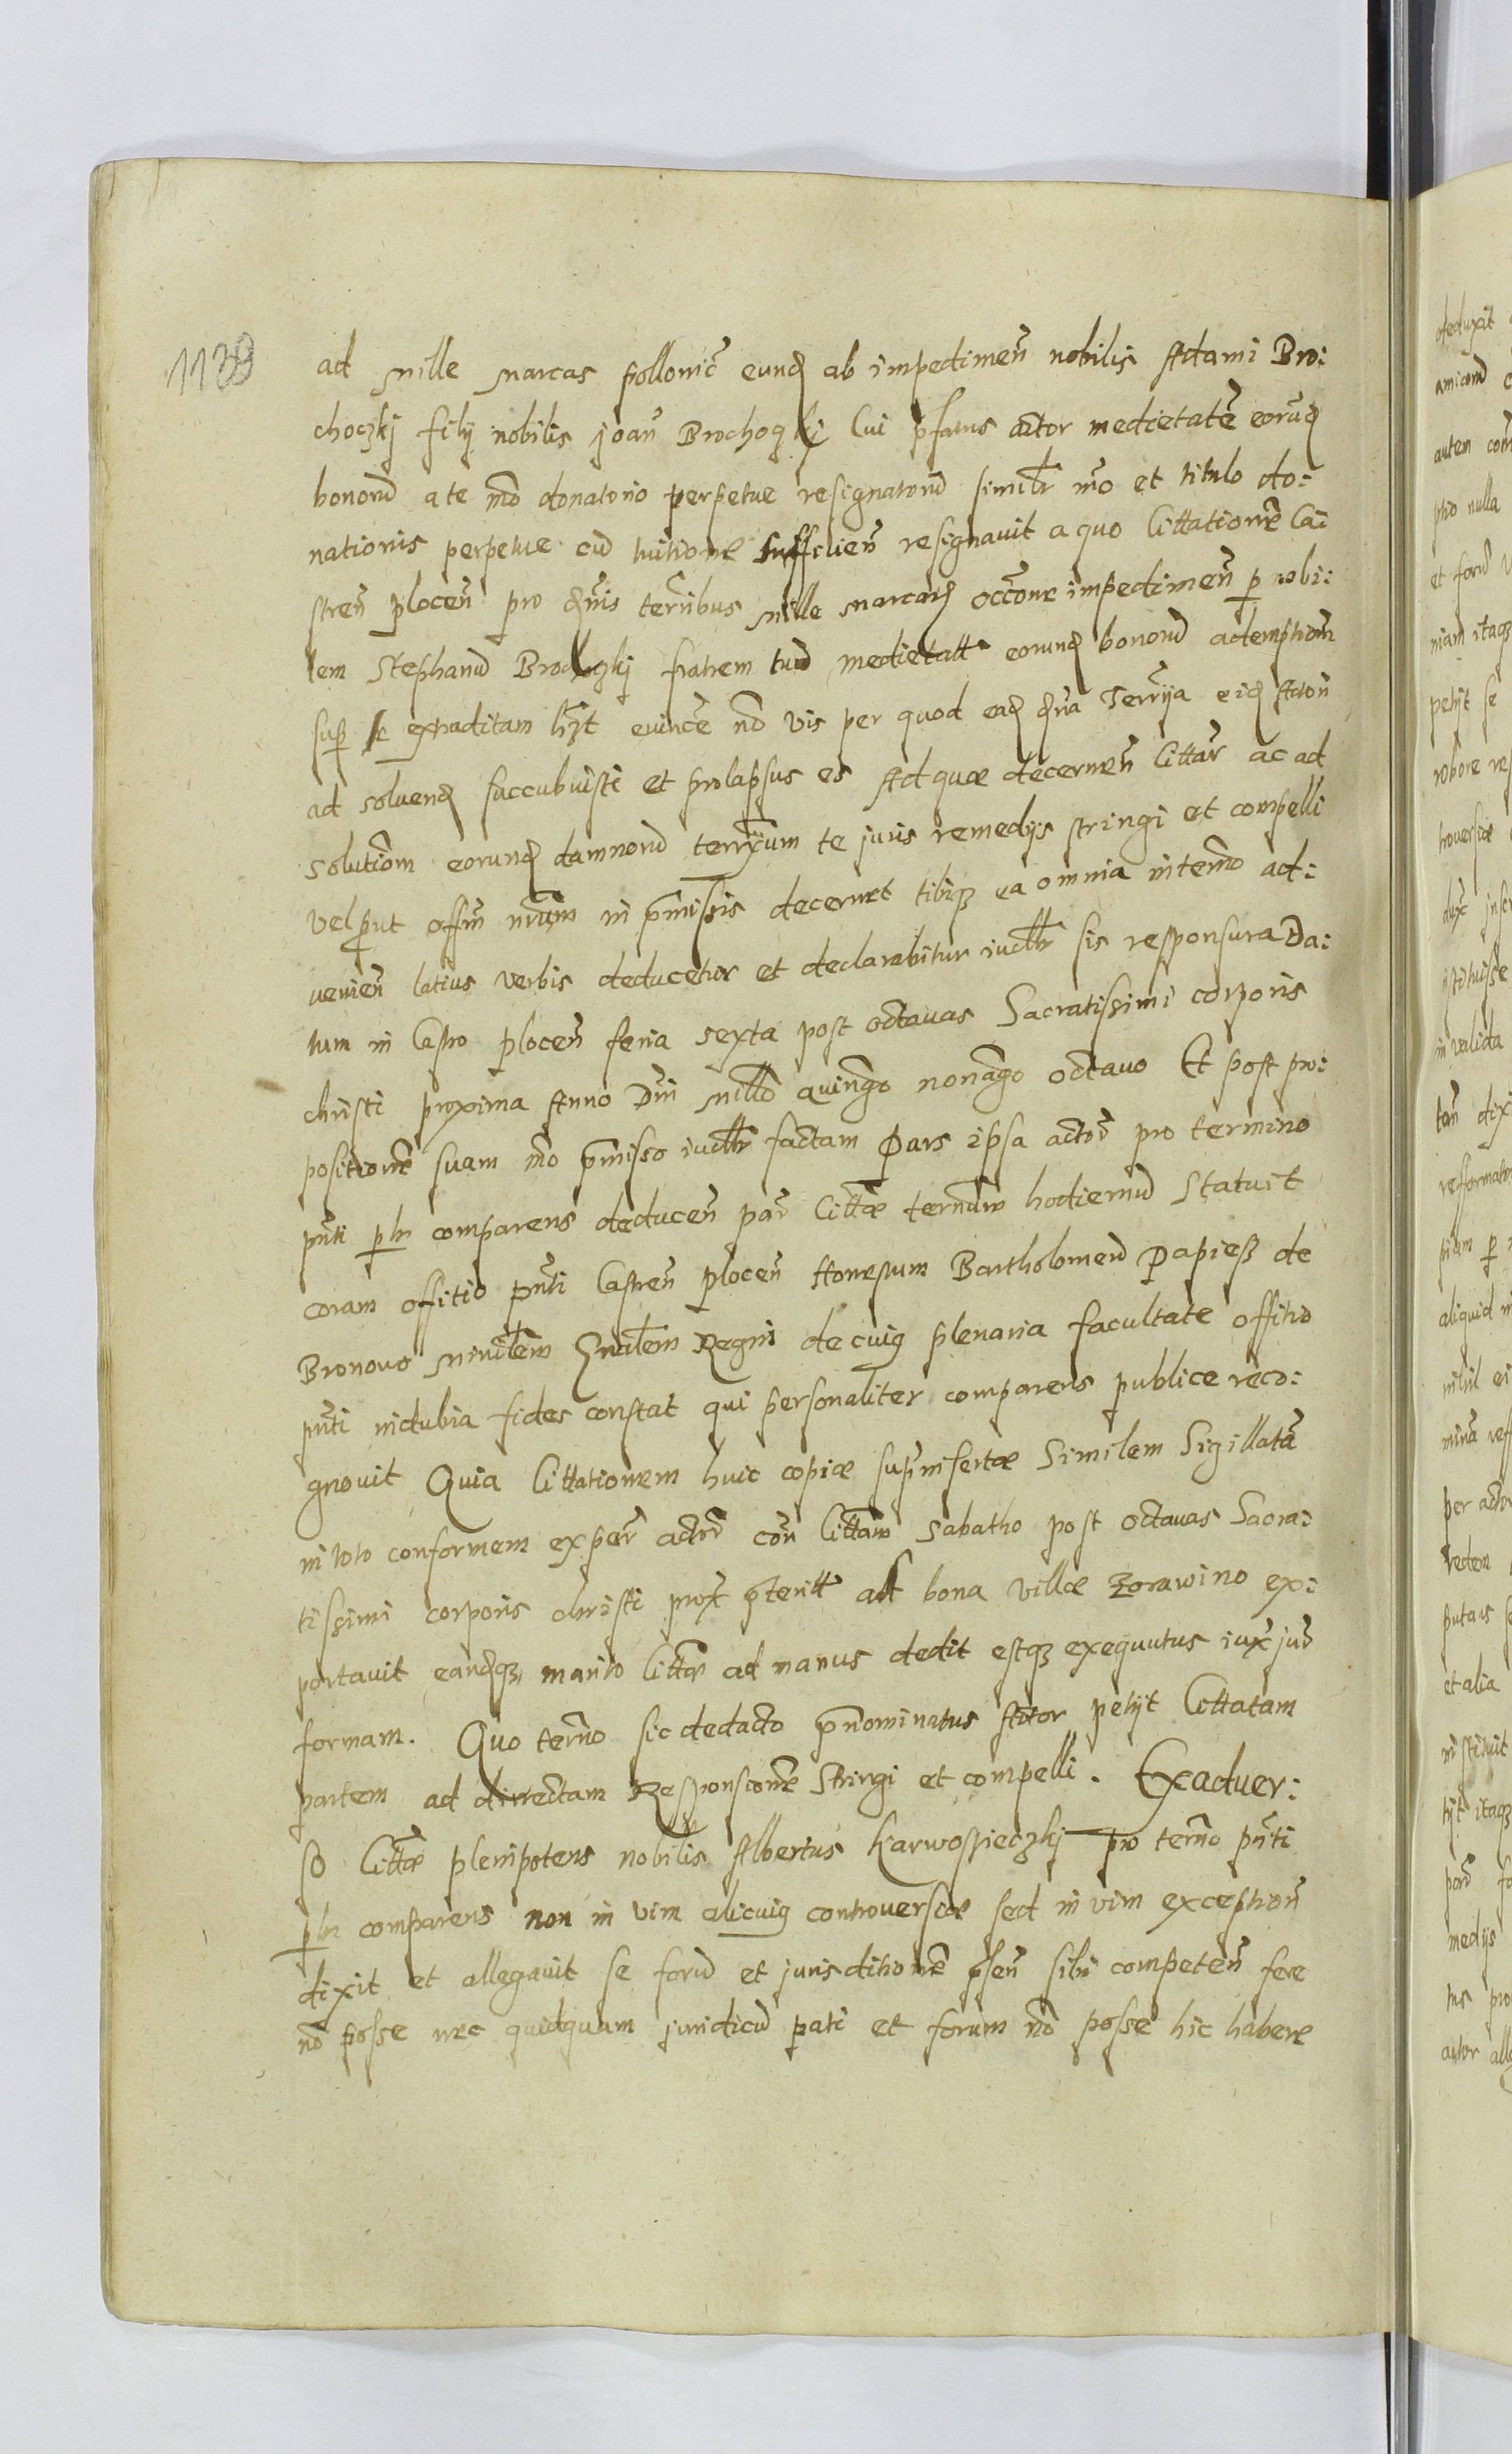 1139
ad mille marcas pollonic̄ eund ab impedimen̄ nobilis Adami Bro:
choczkj filij nobilis joan̄ Brochoczkj Cui p̄fatus actor medietatē eorūd
bonorū a te mō donatorio perpetue resignatorū similr̄ mō et titulo do:
nationis perpetue cū tuitione sufficien̄ resignauit a quo Cittationē Ca:
stren̄ plocen̄ pro dn̄is terrīibus mille marcarū occōne impedimen̄ p nobi:
lem Stephanū Brochoczkj fratrem tuū medietatt eorund bonorū ademption̄
sup se expaditam hr̄et euincē nō vis per quod ead dn̄a Terrīja eid Actori
ad soluend succubuisti et prolapsus es Ad quæ decernen̄ Cittar̄ ac ad
solutiōm eorund damnorū terrījum te juris remedijs stringi et compelli
vel put offm̄ nr̄um in p̄missis decernet tibiq ea omnia in termō ad:
uenien̄ latius verbis deducetur et declarabitur iudllr̄ sis responsura Da:
tum in Castro plocen̄ feria sexta post octauas Sacratissimi corporis
christi proxima Anno Dn̄i millō quingō nonagō octauo Et post pro:
positionē suam mō p̄misso iudllr̄ factam Pars ipsa actor̄ pro termino
pn̄ti p hr comparens deducen̄ par̄ Cittæ termīum hodiernū Statuit
coram offitio pn̄ti Castren̄ plocen̄ Honestum Bartholomeū Papiesz de
Bronouo ministlem̄ Gn̄alem̄ Regni de cuiq plenaria facultate offitio
pn̄ti indubia fides constat qui personaliter comparens publice reco:
gnouit Quia Cittationem huic copiæ sup̄insertæ Similem Sigillatā
in toto conformem ex per̄ actor̄ con̄ Cittam̄ Sabatho post octauas Sacra:
tissimi corporis christi prox̄ p̄teritt ad bona villæ Zorawino ex:
portauit eandq marito Cittæ ad manus dedit estq exequutus iux̄ jur̄
formam. Quo termō sic deducto p̄nominatus Actor petijt Cittatam
partem ad dirrectam Responsionē Stringi et compelli. Exaduer:
so Cittæ plenipotens nobilis Albertus Karwosieczkj pro termō pn̄ti
p hr comparens non in vim alicuiq controuersiæ sed in vim exception̄
dixit et allegauit se forū et jurisditionē p̄sen̄ sibi competen̄ fere
nō posse nec quidquam juridicū pati et forum nō posse hic habere